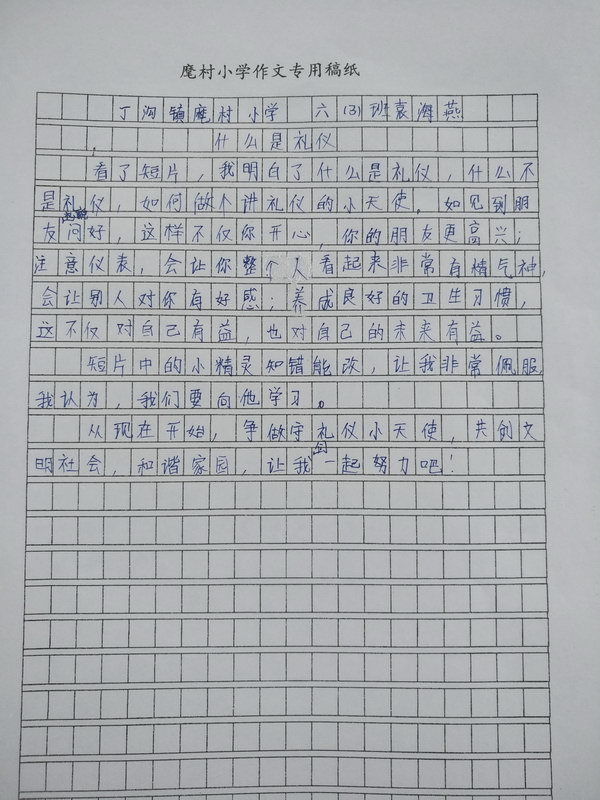 麾村小学作文专用稿纸
丁沟镇麾村小学 六(3)班袁海燕
什么是礼仪
看了短片，我明白了什么是礼仪，什么不
是礼仪，如何做个讲礼仪的小天使。如见到朋
友问好，这样不仅你开心，你的朋友更高兴；
注意仪表，会让你整个人看起来非常有精气神，
会让别人对你有好感；养成良好的卫生习惯，
这不仅对自己有益，也对自己的未来有益。
短片中的小精灵知错能改，让我非常佩服，
我认为，我们要向他学习。
从现在开始，争做守礼仪小天使，共创文
明社会，和谐家园，让我们一起努力吧！